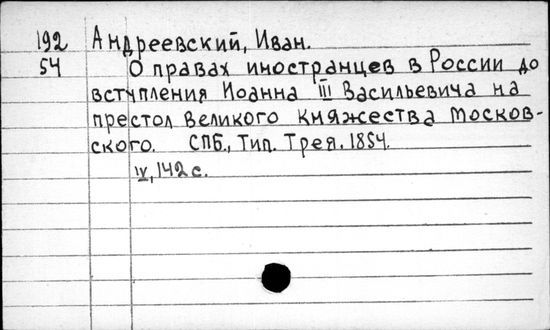 192 Андреевский, Иван.
54 О правах иностранцев в России до
вступления Иоанна III Васильевича на
престол великого княжества Москов-
ского. СПБ., Тип. Трея. 1854.
IV, 142 с.